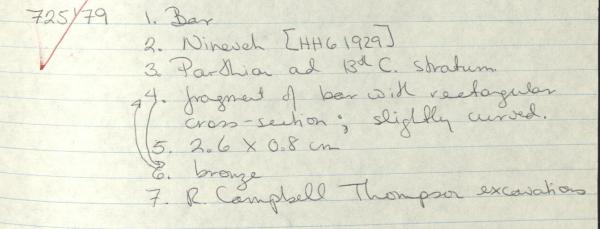 725/79 1. Bar
2. Nineveh [HHG 1929]
3. Parthian ad 13th C. stratum.
4. fragment of bar with rectangular
cross-section; slightly curved.
5. 2.6 X 0.8 cm
6. bronze
7. R. Campbell Thompson excavations